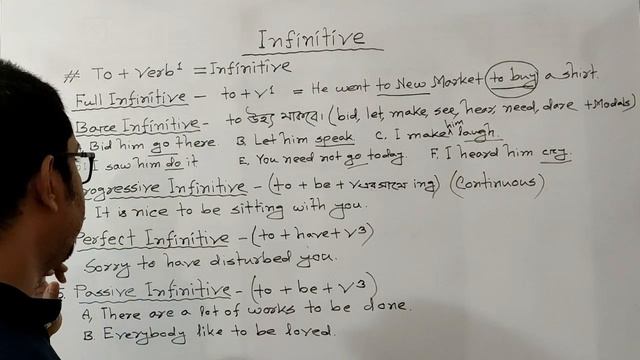 Infinitive
# To + Verb¹ = Infinitive
Full Infinitive - to + v¹ = He went to New Market to buy a shirt.
Bare Infinitive - to উহ্য থাকবে। (bid, let, make, see, hear, need, dare + Modals)
Bid him go there. B. Let him speak. C. I make him laugh.
I saw him do it E. You need not go today. F. I heard him cry.
rogressive Infinitive - (to + be + v এর সাথে ing) (Continuous)
It is nice to be sitting with you.
Perfect Infinitive - (to + have + v³)
Sorry to have disturbed you.
5. Passive Infinitive - (to + be + v³)
A, There are a lot of works to be done.
B. Everybody like to be loved.